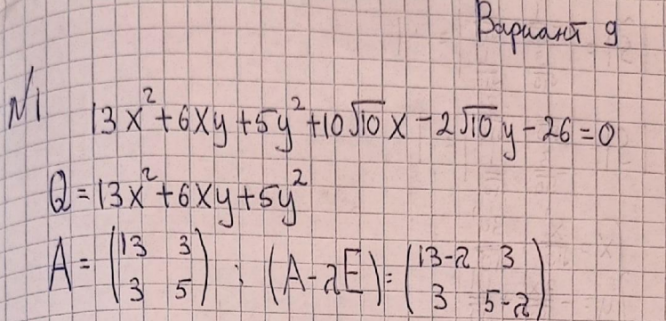 Вариант 9
№1
13x² + 6xy + 5y² + 10√10 x - 2√10 y - 26 = 0
Q = 13x² + 6xy + 5y²
A = (13 3; 3 5) ; (A - λE) = (13-λ 3; 3 5-λ)